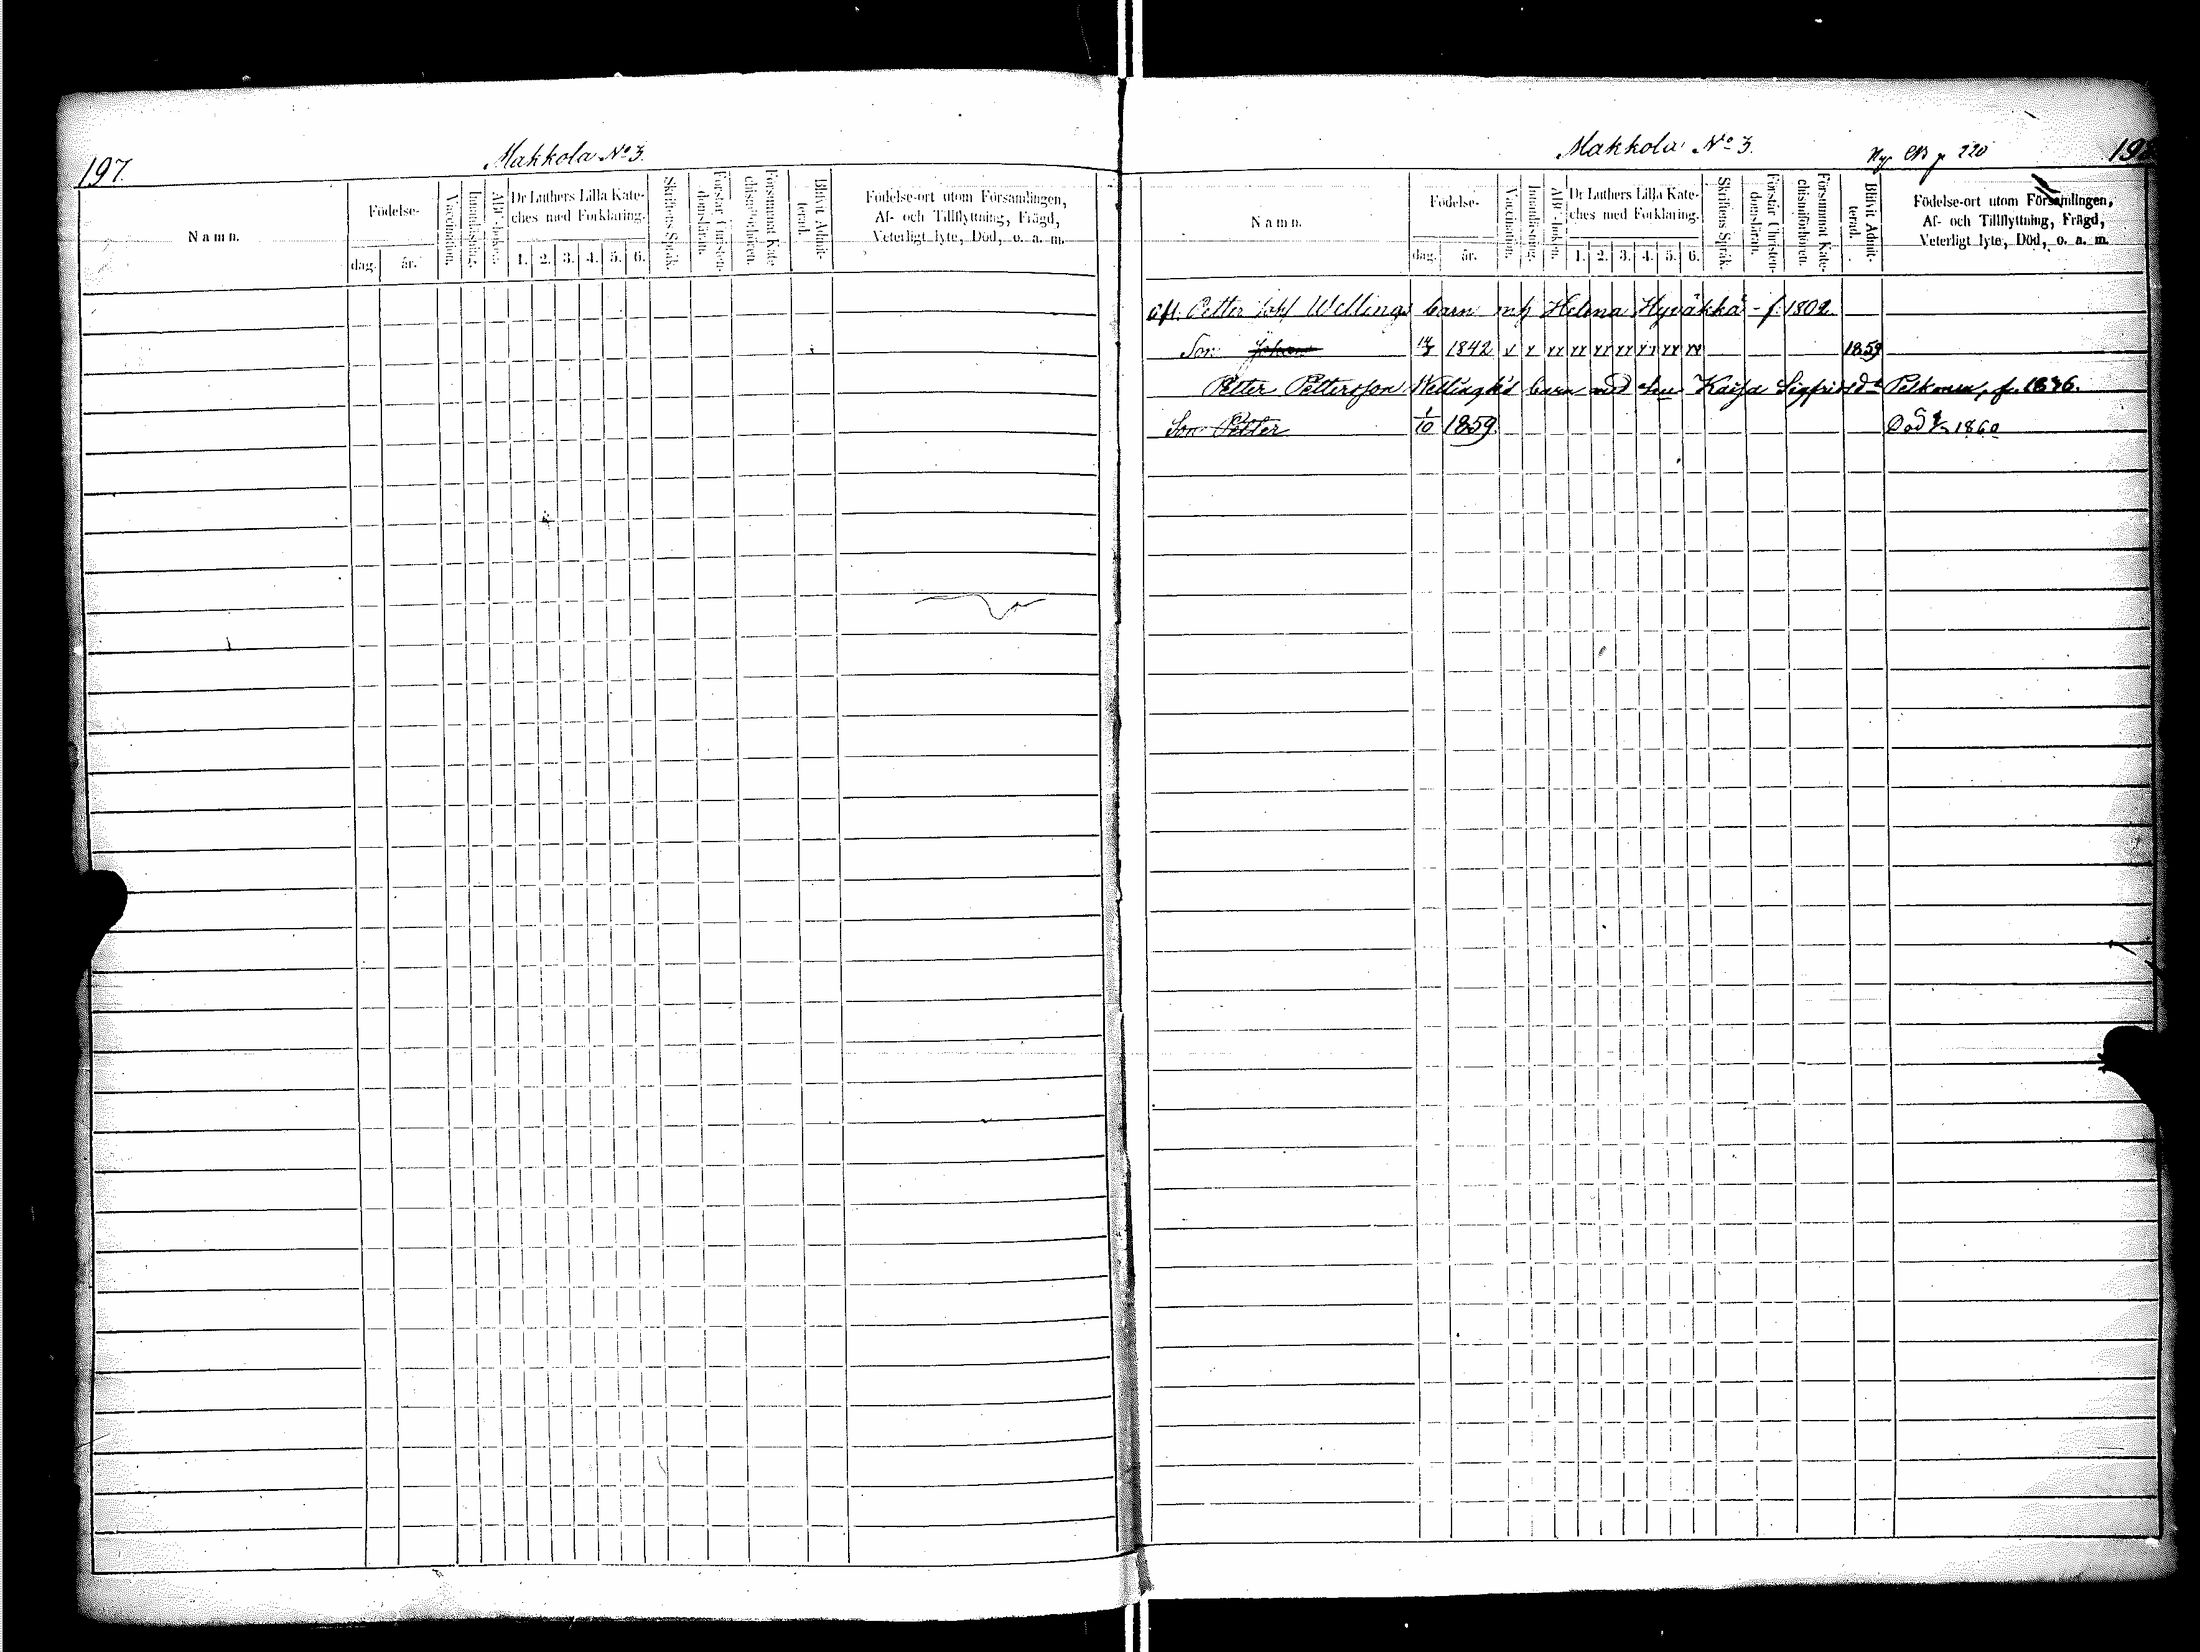 197.
Makkola No 3.
Namn.
Födelse-
dag.
år.
Vaccination.
Innanläsning.
ABC-boken.
Dr Luthers Lilla Kate-
ches med Förklaring.
1. 2. 3. 4. 5. 6.
Skriftens Språk.
Förstår Christen-
domsläran.
Försummat Kate-
chismiförhören.
Blifvit Admit-
terad.
Födelse-ort utom Församlingen,
Af- och Tillflyttning, Frägd,
Veterligt lyte, Död, o. a. m.
Makkola No 3.
Ny CB p 220
198
Namn.
Födelse-
dag.
år.
Vaccination.
Innanläsning.
ABC-boken.
Dr Luthers Lilla Kate-
ches med Förklaring.
1. 2. 3. 4. 5. 6.
Skriftens Språk.
Förstår Christen-
domsläran.
Försummat Kate-
chismiförhören.
Blifvit Admit-
terad.
Födelse-ort utom Församlingen,
Af- och Tillflyttning, Frägd,
Veterligt lyte, Död, o. a. m.
afl. Petter Joh Wellings barn mh Helena Hyväkkä - f. 1802
Son Johan 1842 1859
Petter Pettersson Wellingk's barn med Kaisa Sigfridsd:r Pelkonen, f. 1836.
Son Petter 1/10 1859 Död 1860